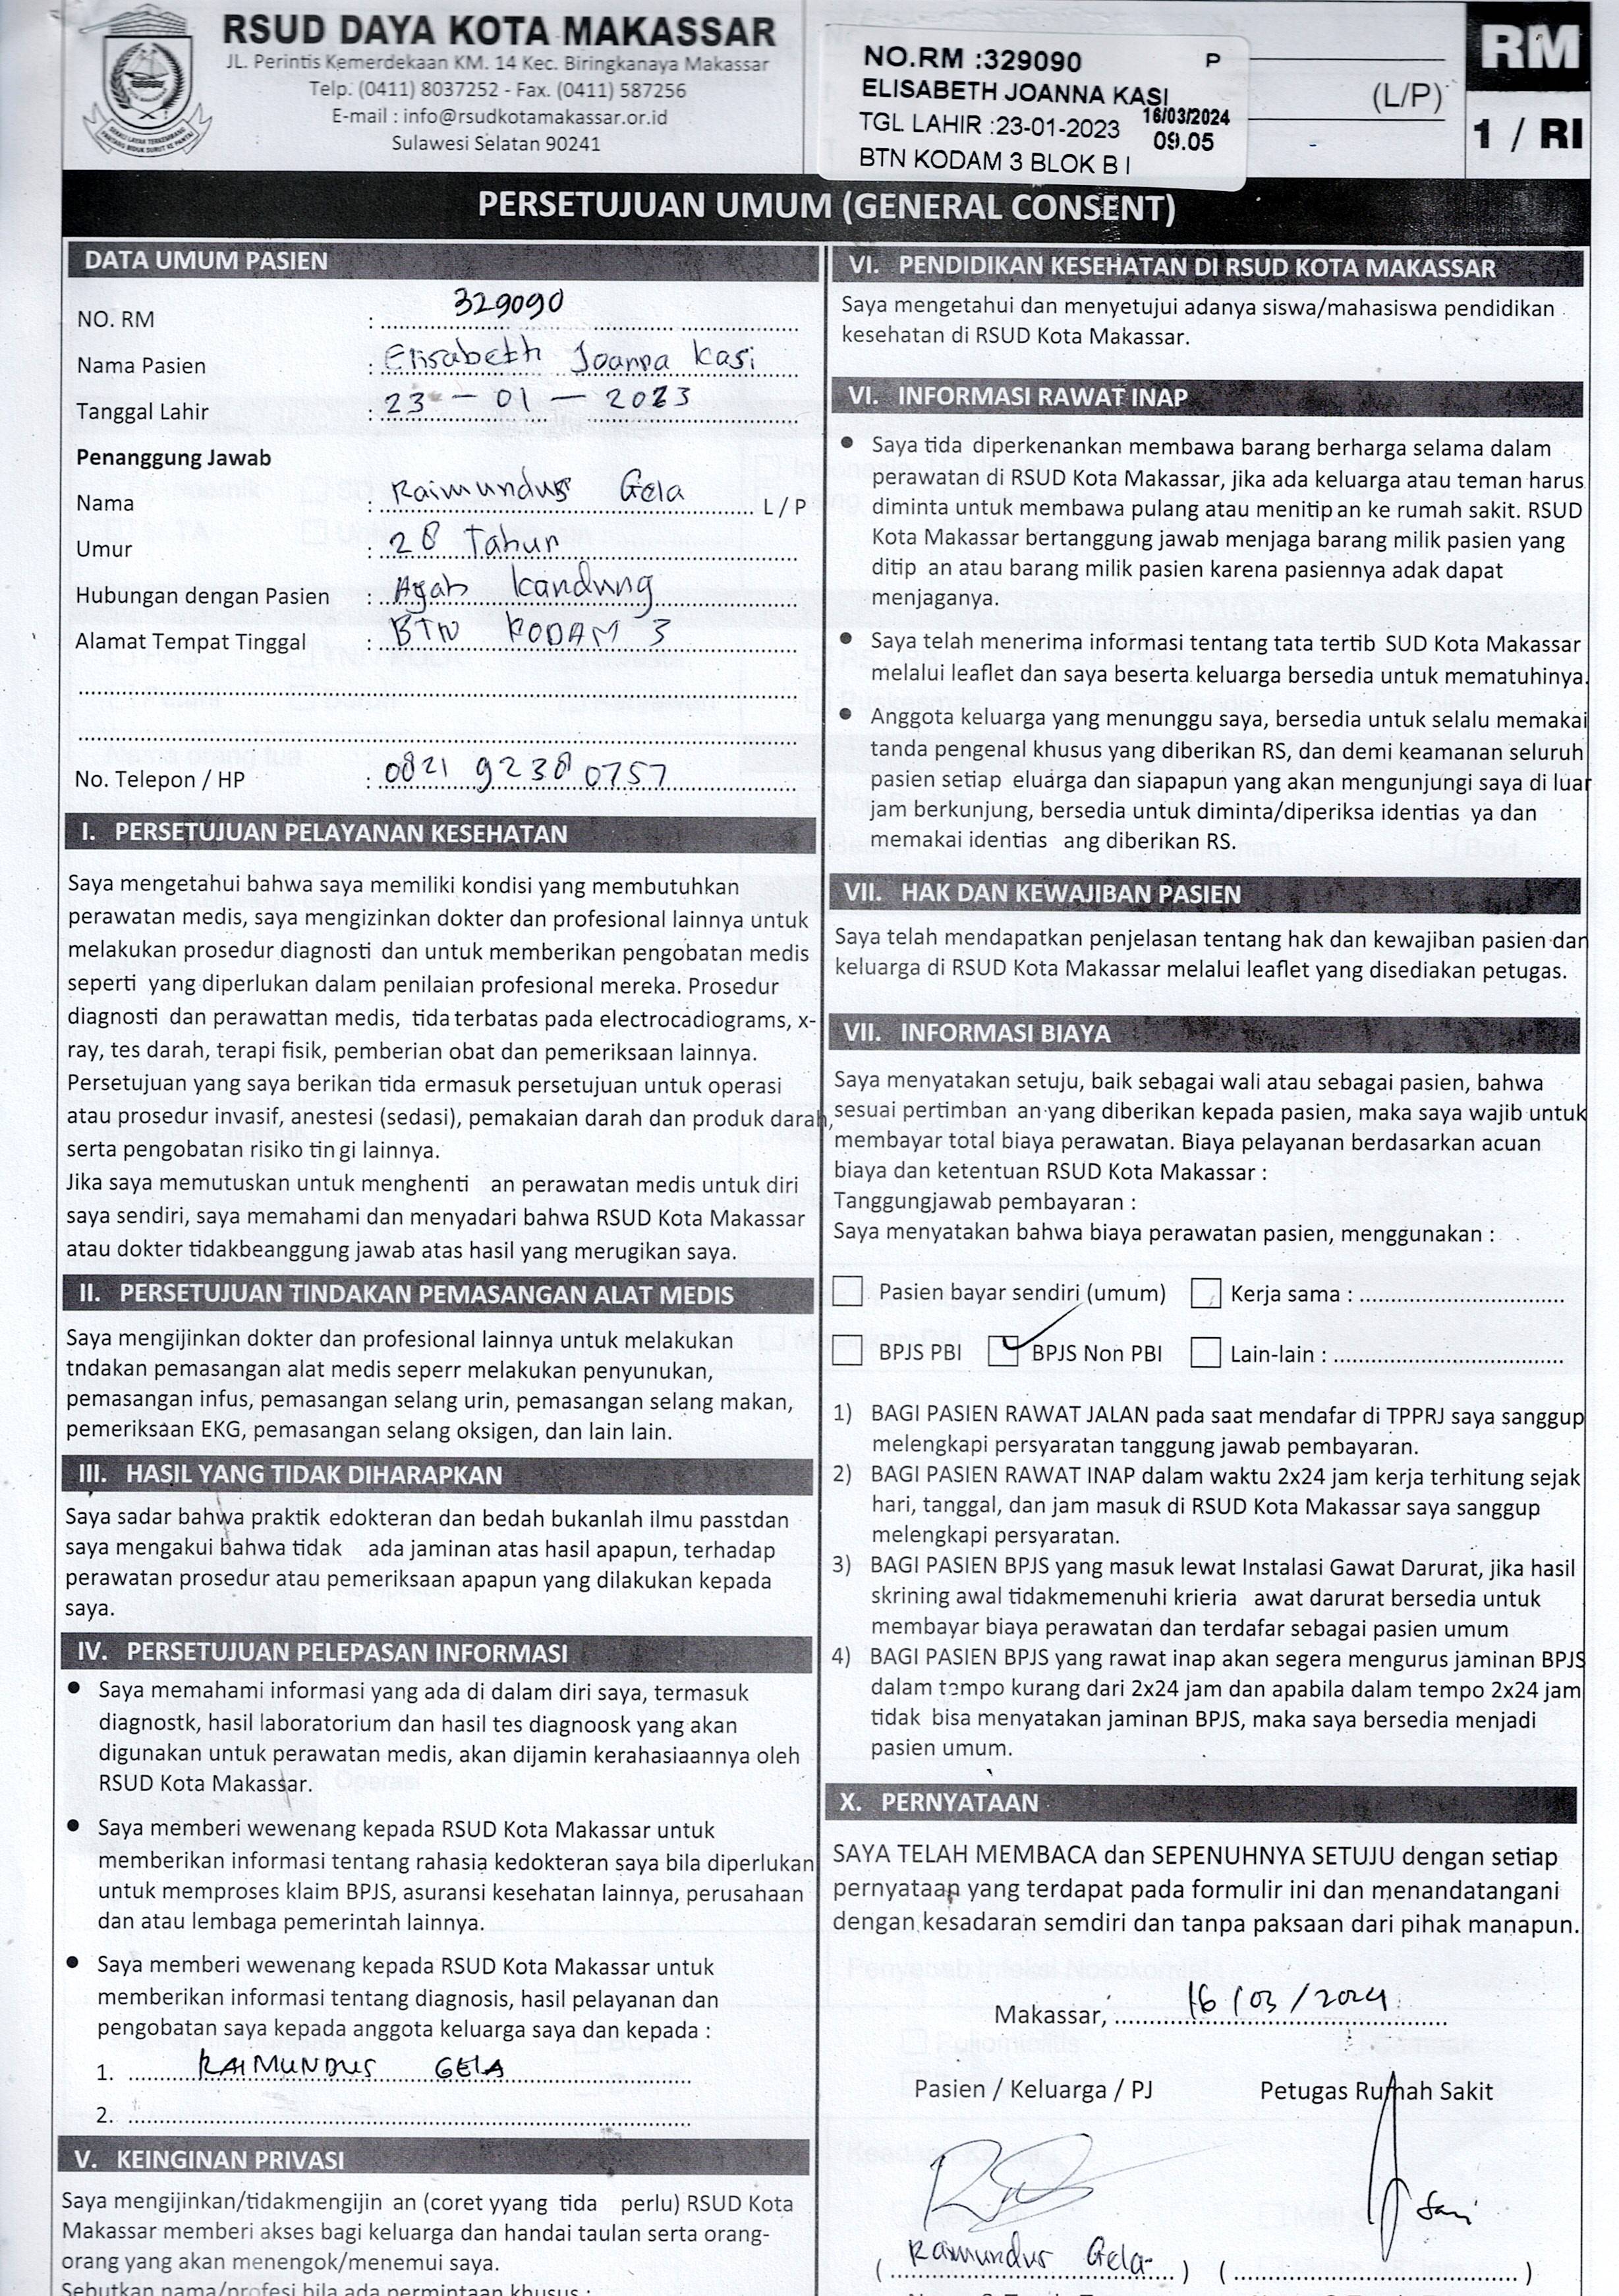 RSUD DAYA KOTA MAKASSAR
JL. Perintis Kemerdekaan KM. 14 Kec. Biringkanaya Makassar
Telp. (0411) 8037252 - Fax. (0411) 587256
E-mail : info@rsudkotamakassar.or.id
Sulawesi Selatan 90241
NO.RM :329090 P
ELISABETH JOANNA KASI
TGL LAHIR :23-01-2023 16/03/2024
09.05
BTN KODAM 3 BLOK B I
(L/P)
RM
1 / RI
PERSETUJUAN UMUM (GENERAL CONSENT)
DATA UMUM PASIEN
NO. RM : 329090
Nama Pasien : Elisabeth Joanna Kasi
Tanggal Lahir : 23 - 01 - 2023
Penanggung Jawab
Nama : Raimundus Gela L / P
Umur : 28 Tahun
Hubungan dengan Pasien : Ayah Kandung
Alamat Tempat Tinggal : BTN KODAM 3
No. Telepon / HP : 0821 9238 0757
I. PERSETUJUAN PELAYANAN KESEHATAN
Saya mengetahui bahwa saya memiliki kondisi yang membutuhkan
perawatan medis, saya mengizinkan dokter dan profesional lainnya untuk
melakukan prosedur diagnosti dan untuk memberikan pengobatan medis
seperti yang diperlukan dalam penilaian profesional mereka. Prosedur
diagnosti dan perawattan medis, tida terbatas pada electrocadiograms, x-
ray, tes darah, terapi fisik, pemberian obat dan pemeriksaan lainnya.
Persetujuan yang saya berikan tida ermasuk persetujuan untuk operasi
atau prosedur invasif, anestesi (sedasi), pemakaian darah dan produk darah,
serta pengobatan risiko tin gi lainnya.
Jika saya memutuskan untuk menghenti an perawatan medis untuk diri
saya sendiri, saya memahami dan menyadari bahwa RSUD Kota Makassar
atau dokter tidakbeanggung jawab atas hasil yang merugikan saya.
II. PERSETUJUAN TINDAKAN PEMASANGAN ALAT MEDIS
Saya mengijinkan dokter dan profesional lainnya untuk melakukan
tndakan pemasangan alat medis seperr melakukan penyunukan,
pemasangan infus, pemasangan selang urin, pemasangan selang makan,
pemeriksaan EKG, pemasangan selang oksigen, dan lain lain.
III. HASIL YANG TIDAK DIHARAPKAN
Saya sadar bahwa praktik edokteran dan bedah bukanlah ilmu passtdan
saya mengakui bahwa tidak ada jaminan atas hasil apapun, terhadap
perawatan prosedur atau pemeriksaan apapun yang dilakukan kepada
saya.
IV. PERSETUJUAN PELEPASAN INFORMASI
• Saya memahami informasi yang ada di dalam diri saya, termasuk
diagnostk, hasil laboratorium dan hasil tes diagnoosk yang akan
digunakan untuk perawatan medis, akan dijamin kerahasiaannya oleh
RSUD Kota Makassar.
• Saya memberi wewenang kepada RSUD Kota Makassar untuk
memberikan informasi tentang rahasia kedokteran saya bila diperlukan
untuk memproses klaim BPJS, asuransi kesehatan lainnya, perusahaan
dan atau lembaga pemerintah lainnya.
• Saya memberi wewenang kepada RSUD Kota Makassar untuk
memberikan informasi tentang diagnosis, hasil pelayanan dan
pengobatan saya kepada anggota keluarga saya dan kepada :
1. RAIMUNDUS GELA
2.
V. KEINGINAN PRIVASI
Saya mengijinkan/tidakmengijin an (coret yyang tida perlu) RSUD Kota
Makassar memberi akses bagi keluarga dan handai taulan serta orang-
orang yang akan menengok/menemui saya.
Sebutkan nama/profesi bila ada permintaan khusus :
VI. PENDIDIKAN KESEHATAN DI RSUD KOTA MAKASSAR
Saya mengetahui dan menyetujui adanya siswa/mahasiswa pendidikan
kesehatan di RSUD Kota Makassar.
VI. INFORMASI RAWAT INAP
• Saya tida diperkenankan membawa barang berharga selama dalam
perawatan di RSUD Kota Makassar, jika ada keluarga atau teman harus
diminta untuk membawa pulang atau menitip an ke rumah sakit. RSUD
Kota Makassar bertanggung jawab menjaga barang milik pasien yang
ditip an atau barang milik pasien karena pasiennya adak dapat
menjaganya.
• Saya telah menerima informasi tentang tata tertib SUD Kota Makassar
melalui leaflet dan saya beserta keluarga bersedia untuk mematuhinya.
• Anggota keluarga yang menunggu saya, bersedia untuk selalu memakai
tanda pengenal khusus yang diberikan RS, dan demi keamanan seluruh
pasien setiap eluarga dan siapapun yang akan mengunjungi saya di luar
jam berkunjung, bersedia untuk diminta/diperiksa identias ya dan
memakai identias ang diberikan RS.
VII. HAK DAN KEWAJIBAN PASIEN
Saya telah mendapatkan penjelasan tentang hak dan kewajiban pasien dan
keluarga di RSUD Kota Makassar melalui leaflet yang disediakan petugas.
VII. INFORMASI BIAYA
Saya menyatakan setuju, baik sebagai wali atau sebagai pasien, bahwa
sesuai pertimban an yang diberikan kepada pasien, maka saya wajib untuk
membayar total biaya perawatan. Biaya pelayanan berdasarkan acuan
biaya dan ketentuan RSUD Kota Makassar :
Tanggungjawab pembayaran :
Saya menyatakan bahwa biaya perawatan pasien, menggunakan :
Pasien bayar sendiri (umum) Kerja sama :
BPJS PBI BPJS Non PBI Lain-lain :
1) BAGI PASIEN RAWAT JALAN pada saat mendafar di TPPRJ saya sanggup
melengkapi persyaratan tanggung jawab pembayaran.
2) BAGI PASIEN RAWAT INAP dalam waktu 2x24 jam kerja terhitung sejak
hari, tanggal, dan jam masuk di RSUD Kota Makassar saya sanggup
melengkapi persyaratan.
3) BAGI PASIEN BPJS yang masuk lewat Instalasi Gawat Darurat, jika hasil
skrining awal tidakmemenuhi krieria awat darurat bersedia untuk
membayar biaya perawatan dan terdafar sebagai pasien umum
4) BAGI PASIEN BPJS yang rawat inap akan segera mengurus jaminan BPJS
dalam tempo kurang dari 2x24 jam dan apabila dalam tempo 2x24 jam
tidak bisa menyatakan jaminan BPJS, maka saya bersedia menjadi
pasien umum.
X. PERNYATAAN
SAYA TELAH MEMBACA dan SEPENUHNYA SETUJU dengan setiap
pernyataan yang terdapat pada formulir ini dan menandatangani
dengan kesadaran semdiri dan tanpa paksaan dari pihak manapun.
Makassar, 16/03/2024
Pasien / Keluarga / PJ Petugas Rumah Sakit
Sari
( Raimundus Gela ) ( )